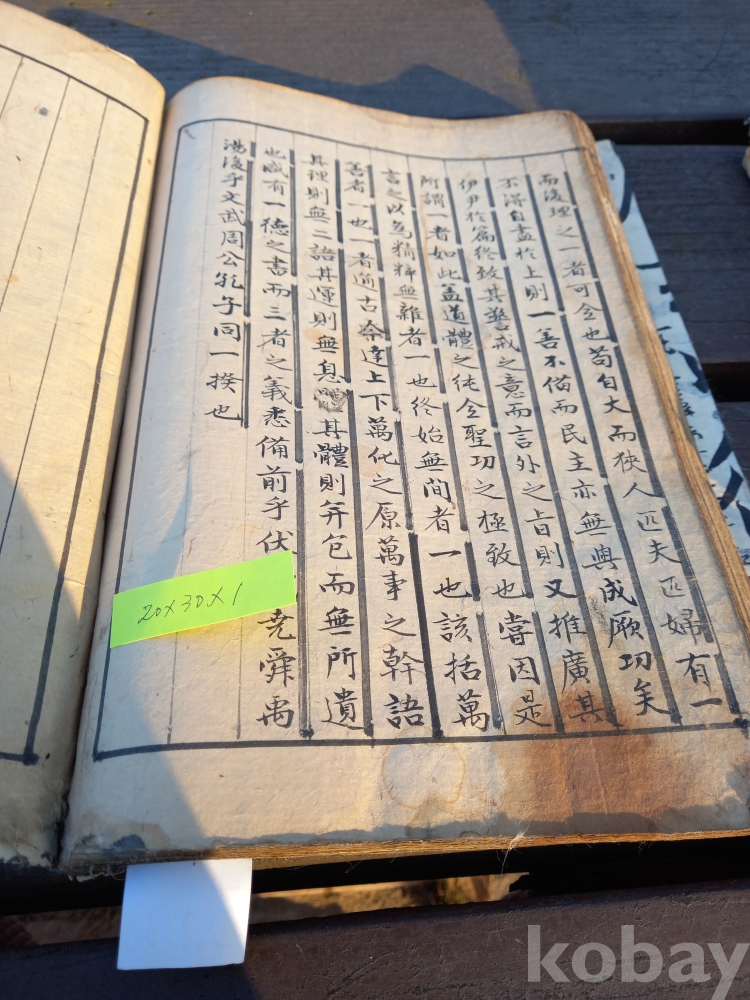 而後理之一者可全也苟自大而狹人匹夫匹婦有一
不得自盡於上則一善不備而民主亦無與成厥功矣
伊尹於篇終致其警戒之意而言外之旨則又推廣其
所謂一者如此盖道體之純全聖功之極致也嘗因是
言之以為精粹無雜者一也終始無間者一也該括萬
善者一也一者通古今達上下萬化之原萬事之幹語
其理則無二語其運則無息其體則并包而無所遺
也咸有一德之書而三者之義悉備前乎伏堯舜禹
湯後乎文武周公孔子同一揆也
20x30x1
kobay